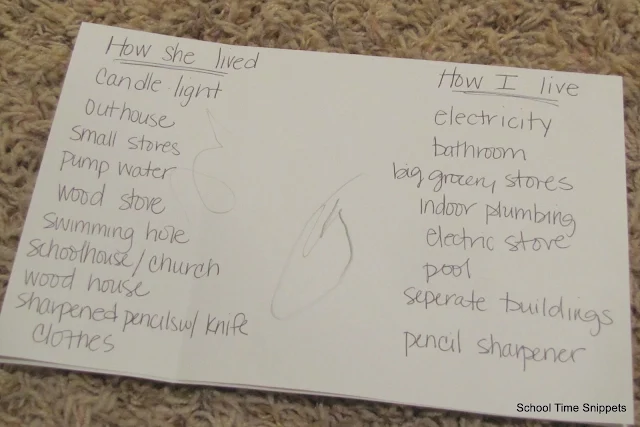 How she lived
candle light
outhouse
small stores
pump water
wood stove
swimming hole
schoolhouse/church
wood house
sharpened pencils w/ knife
clothes
How I live
electricity
bathroom
big grocery stores
indoor plumbing
electric stove
pool
seperate buildings
pencil sharpener
School Time Snippets